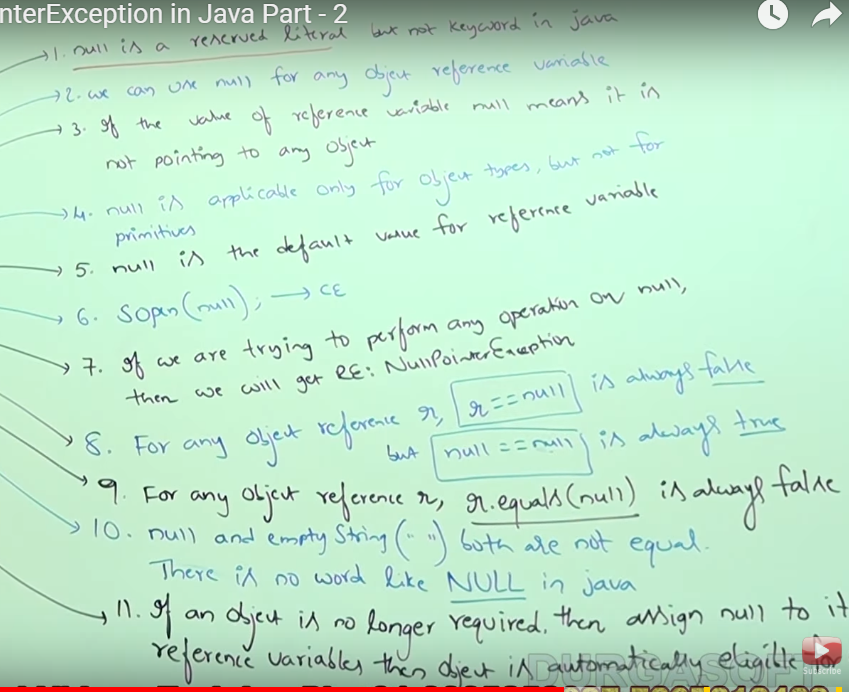 nterException in Java Part - 2
1. null is a reserved literal but not keyword in java
2. we can use null for any object reference variable
3. If the value of reference variable null means it is
not pointing to any object
4. null is applicable only for object types, but not for
primitives
5. null is the default value for reference variable
6. Sopln(null); → CE
7. If we are trying to perform any operation on null,
then we will get RE: NullPointerException
8. For any object reference r, r==null is always false
but null==null is always true
9. For any object reference r, r.equals(null) is always false
10. null and empty String (" ") both are not equal.
There is no word like NULL in java
11. If an object is no longer required, then assign null to it
reference variables then object is automatically eligible for
DURGASOFT
Subscribe